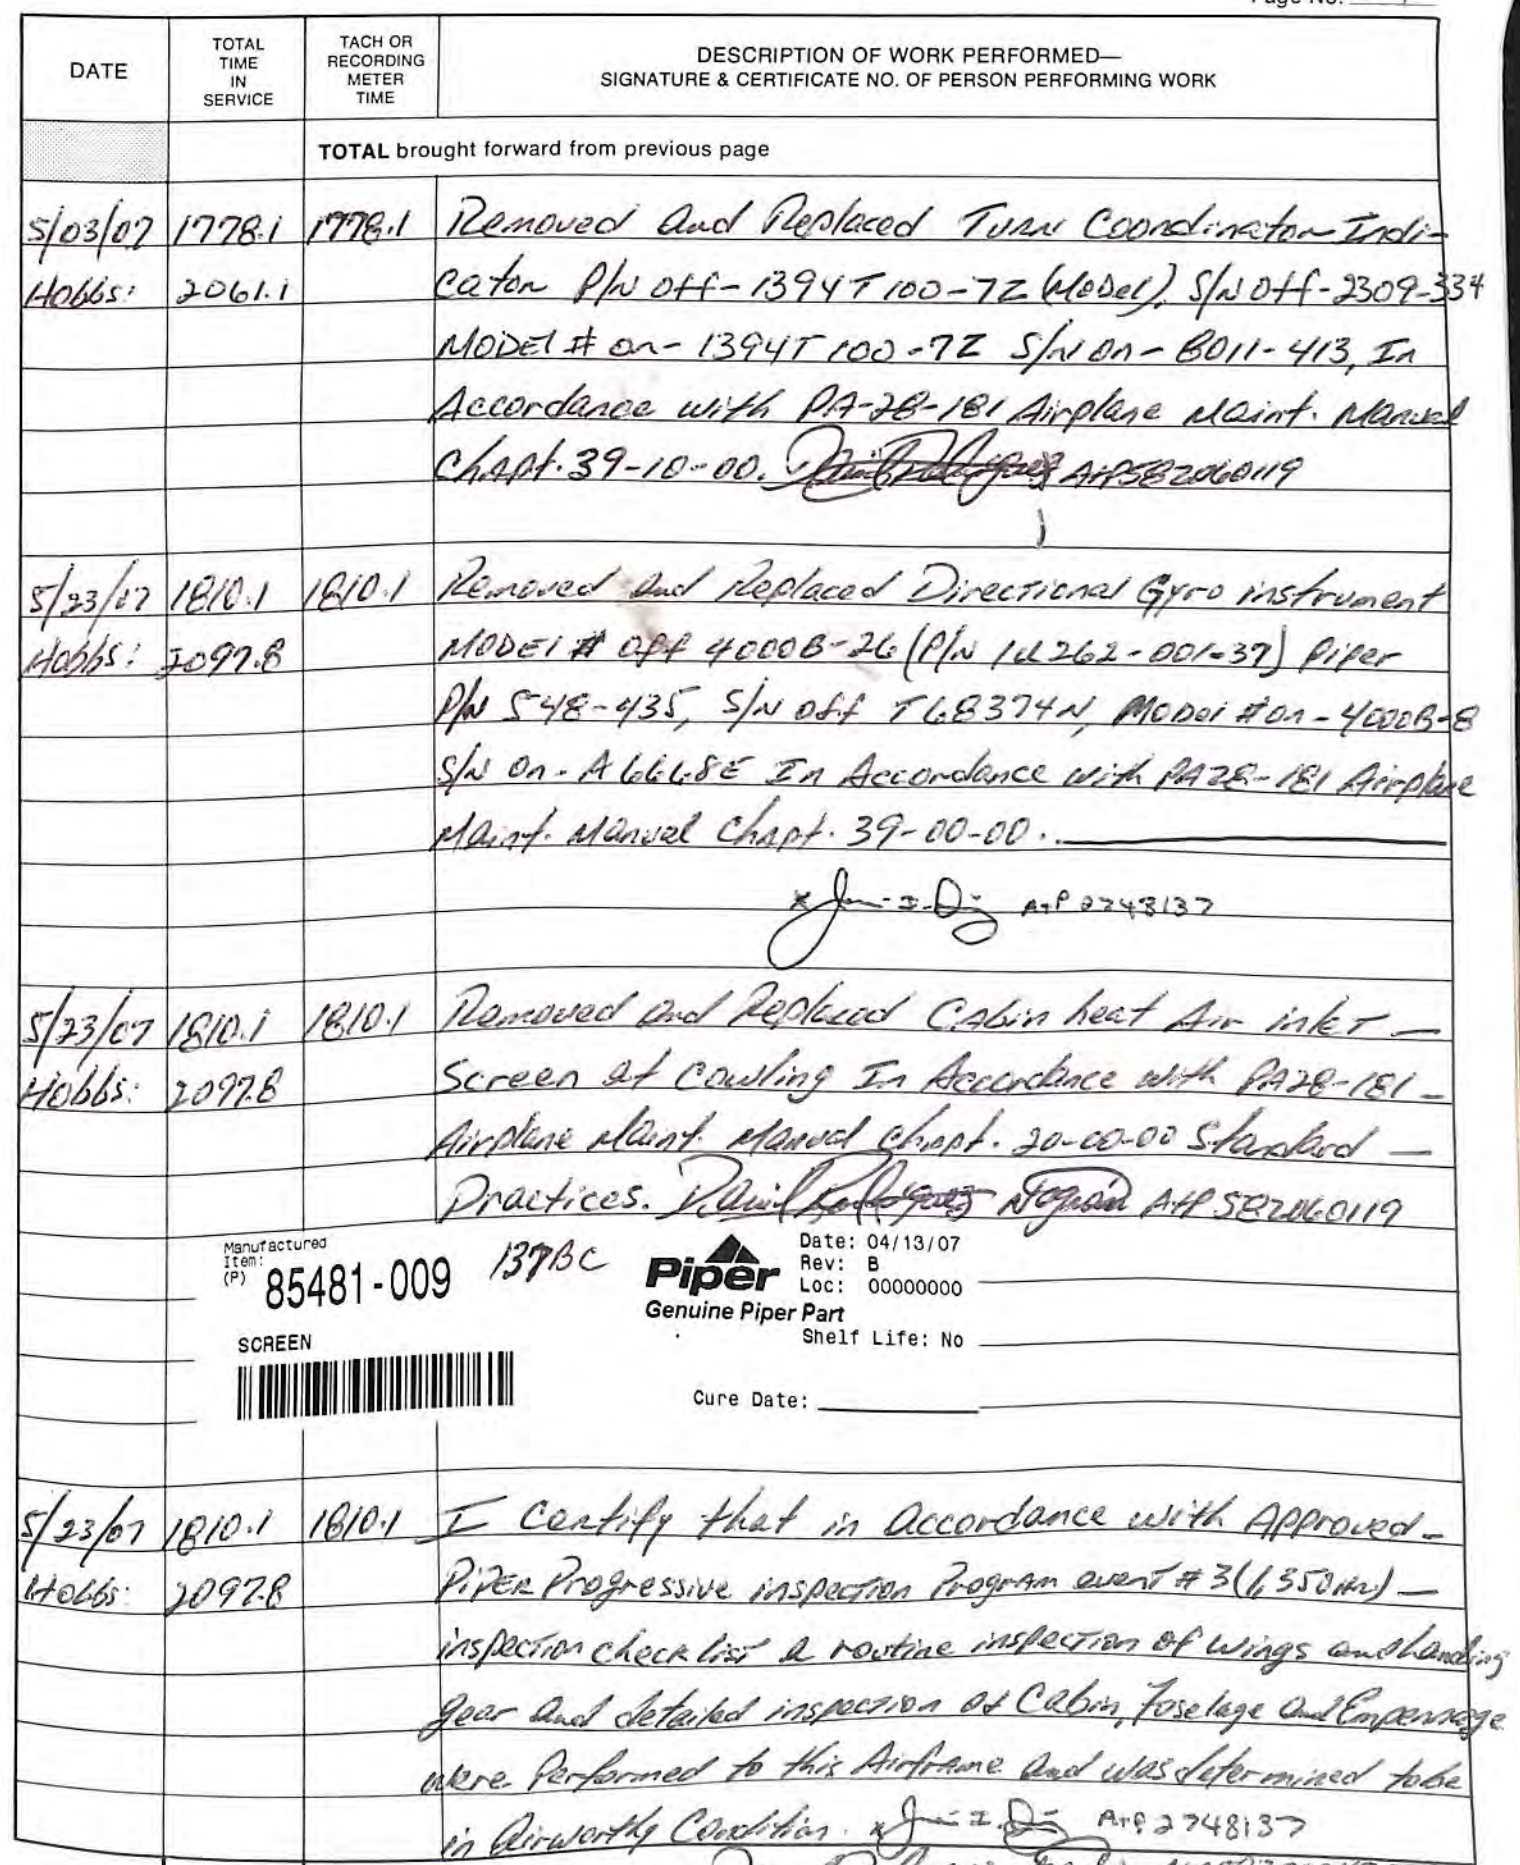 Page No.
DATE
TOTAL TIME IN SERVICE
TACH OR RECORDING METER TIME
DESCRIPTION OF WORK PERFORMED—
SIGNATURE & CERTIFICATE NO. OF PERSON PERFORMING WORK
TOTAL brought forward from previous page
5/03/07 1778.1 1778.1 Removed and Replaced Turn Coordinator Indi-
Hobbs: 2061.1 cator P/N Off-1394T100-7Z (Model), S/N Off-2309-334
MODEL # on- 1394T100-7Z S/N on- B011-413, In
Accordance with PA-28-181 Airplane Maint. Manual
Chapt. 39-10-00. A+P582060119
5/23/07 1810.1 1810.1 Removed and Replaced Directional Gyro instrument
Hobbs: 2097.8 MODEl # off 4000B-26 (P/N 1U262-001-37) Piper
P/N 548-435, S/N off T68374N, Model # on - 4000B-8
S/N on- A6668E In Accordance with PA28-181 Airplane
Maint. Manual Chapt. 39-00-00.
A+P 2748137
5/23/07 1810.1 1810.1 Removed and Replaced Cabin heat Air inlet —
Hobbs: 2097.8 Screen at Cowling In Accordance with PA28-181 -
Airplane Maint. Manual Chapt. 20-00-00 Standard —
Practices. David Rodriguez A+P 582060119
Manufactured Item: (P) 85481-009 137BC Piper Date: 04/13/07
Rev: B
Loc: 00000000
Genuine Piper Part
SCREEN Shelf Life: No
Cure Date:
5/23/07 1810.1 1810.1 I Certify that in accordance with Approved-
Hobbs: 2097.8 PIPER Progressive inspection Program event # 3 (1,350 Hr) —
inspection check list a routine inspection of wings and landing
gear and detailed inspection of Cabin, Foselage and Empennage
were Performed to this Airframe and was determined to be
in Airworthy Condition. A+P 2748137